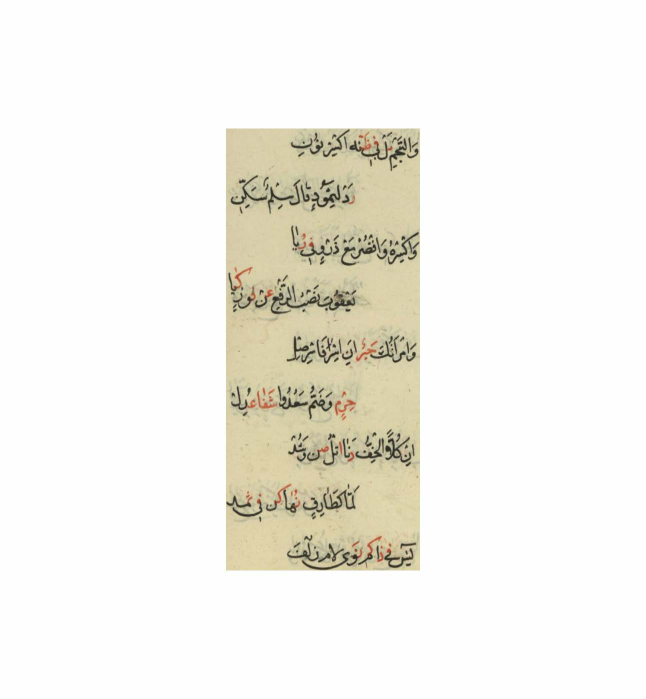 وَالنَّجْمِ نَلْ فِي ظَنِّهِ اكْسِرْ نَوِّنِ
رُدْ لِثَمُودٍ قَالَ سِلْمٌ سَكِّنِ
وَاكْسِرْهُ وَاقْصُرْ مَعَ ذَرْوٍ فِي رُبَا
يَعْقُوبَ نَصْبُ الرَّفْعِ عَنْ فَوْزٍ كَبَا
وَامْرَأَتُكَ حَبْرٌ انِ اسْرِ فَاسْرِ صِلْ
حِرْمٍ وَضَمُّ سَعِدُوا شَفَا عُدِلْ
اِنْ كُلاًّ الْخِفُّ دَنَا اتْلُ صُنْ وَشُدّ
لَمَّا كَطَارِقٍ نُهَى كُنْ فِي ثَمَد
يس فِي ذَا كَمْ نَوَى لام زُلَف